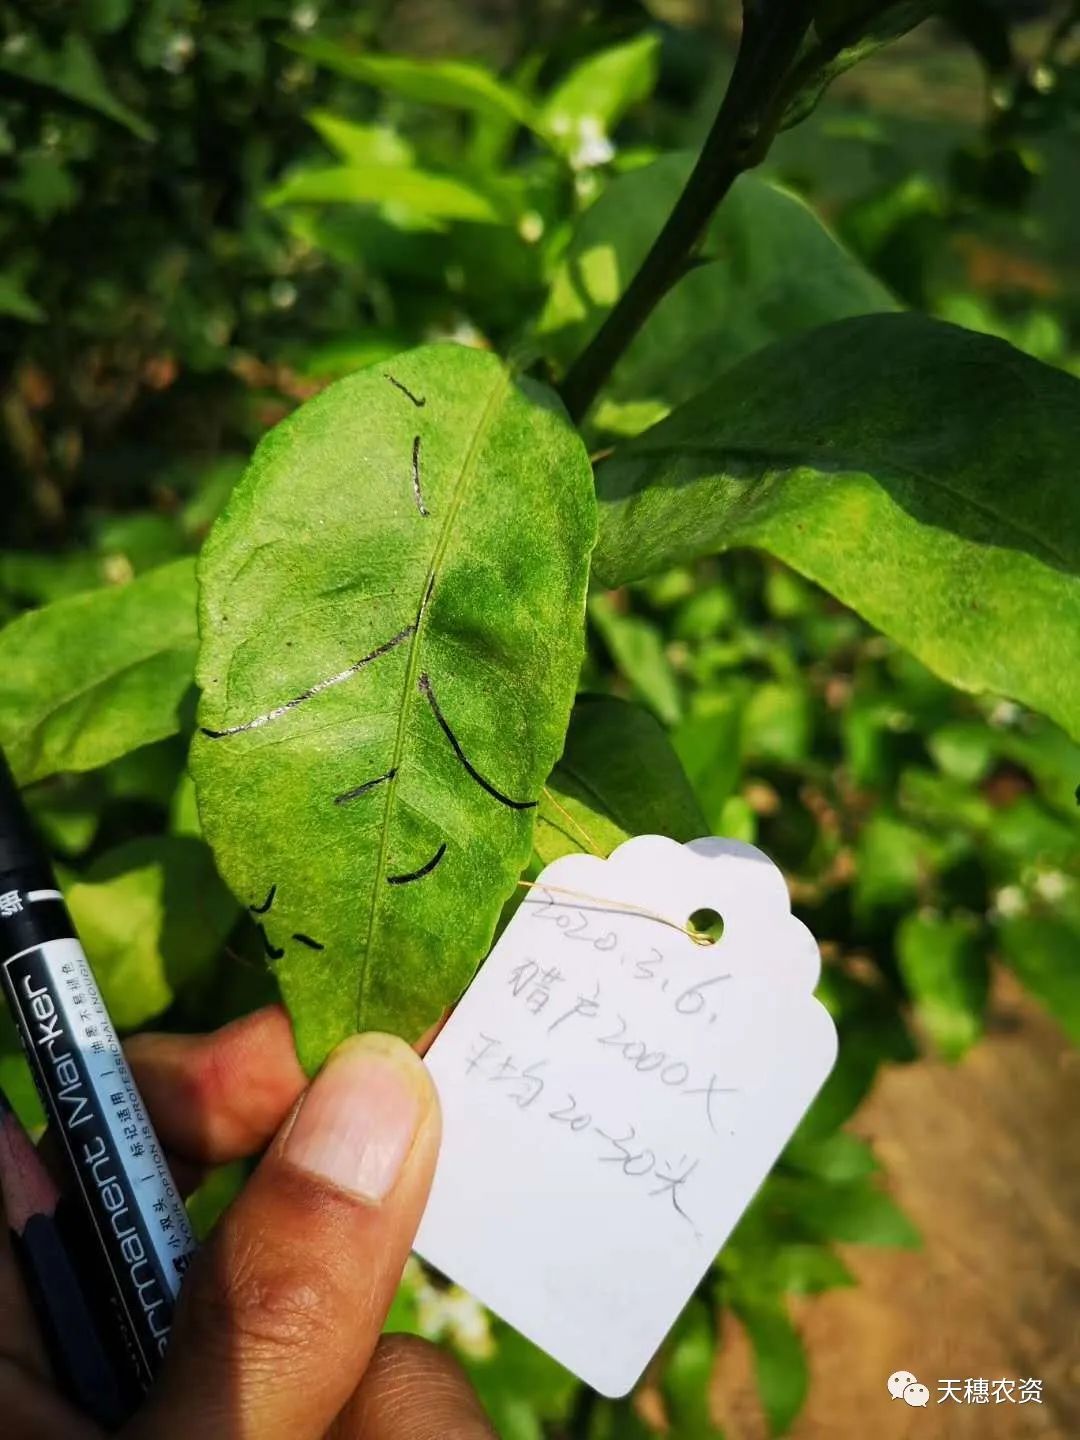 2020.3.6.
腊户2000X
平均20-30头
细
Marker
Permanent Marker
油墨不易褪色
PROFESSIONAL ENOUGH
标记适用
YOUR OPTION IS
小双头
天穗农资